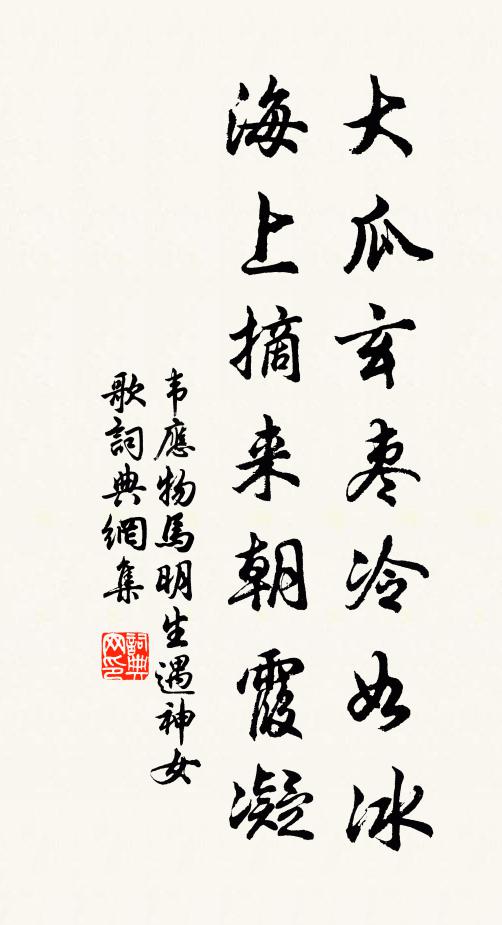 大瓜玄枣冷如冰
海上摘来朝霞凝
韦應物馬明生遇神女
歌詞典網集
詞典網印